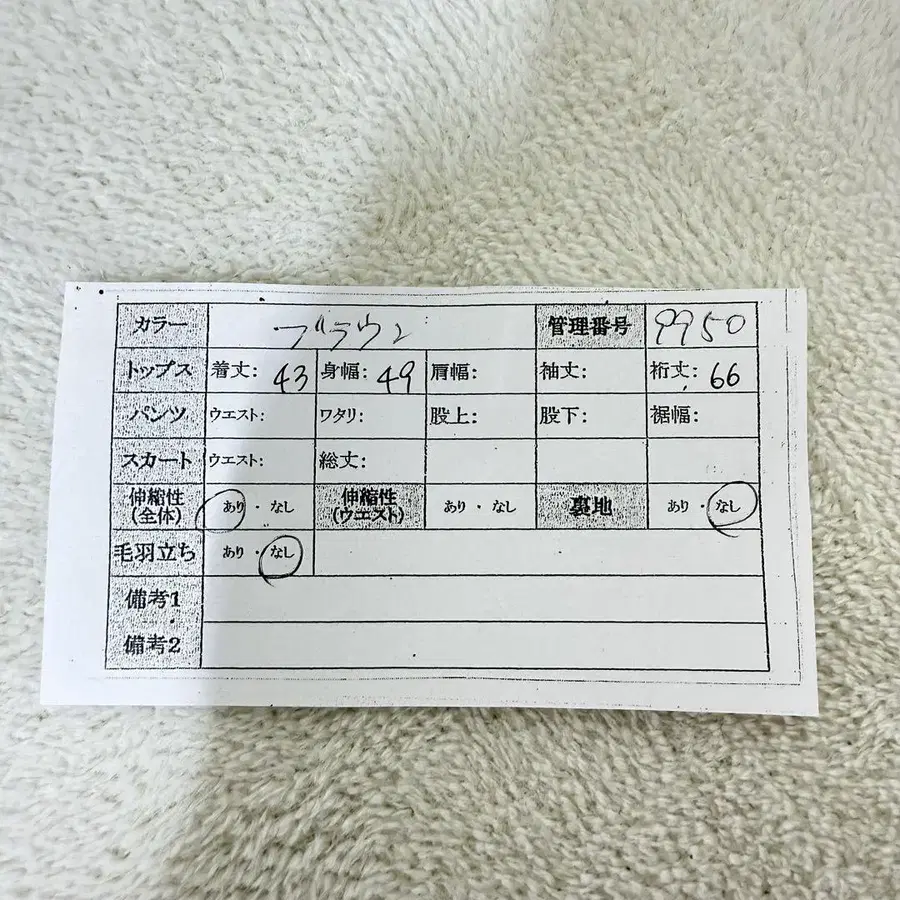 カラー ブラウン 管理番号 9950
トップス 着丈: 43 身幅: 49 肩幅: 袖丈: 裄丈: 66
パンツ ウエスト: ワタリ: 股上: 股下: 裾幅:
スカート ウエスト: 総丈:
伸縮性(全体) あり・なし 伸縮性(ウエスト) あり・なし 裏地 あり・なし
毛羽立ち あり・なし
備考1
備考2